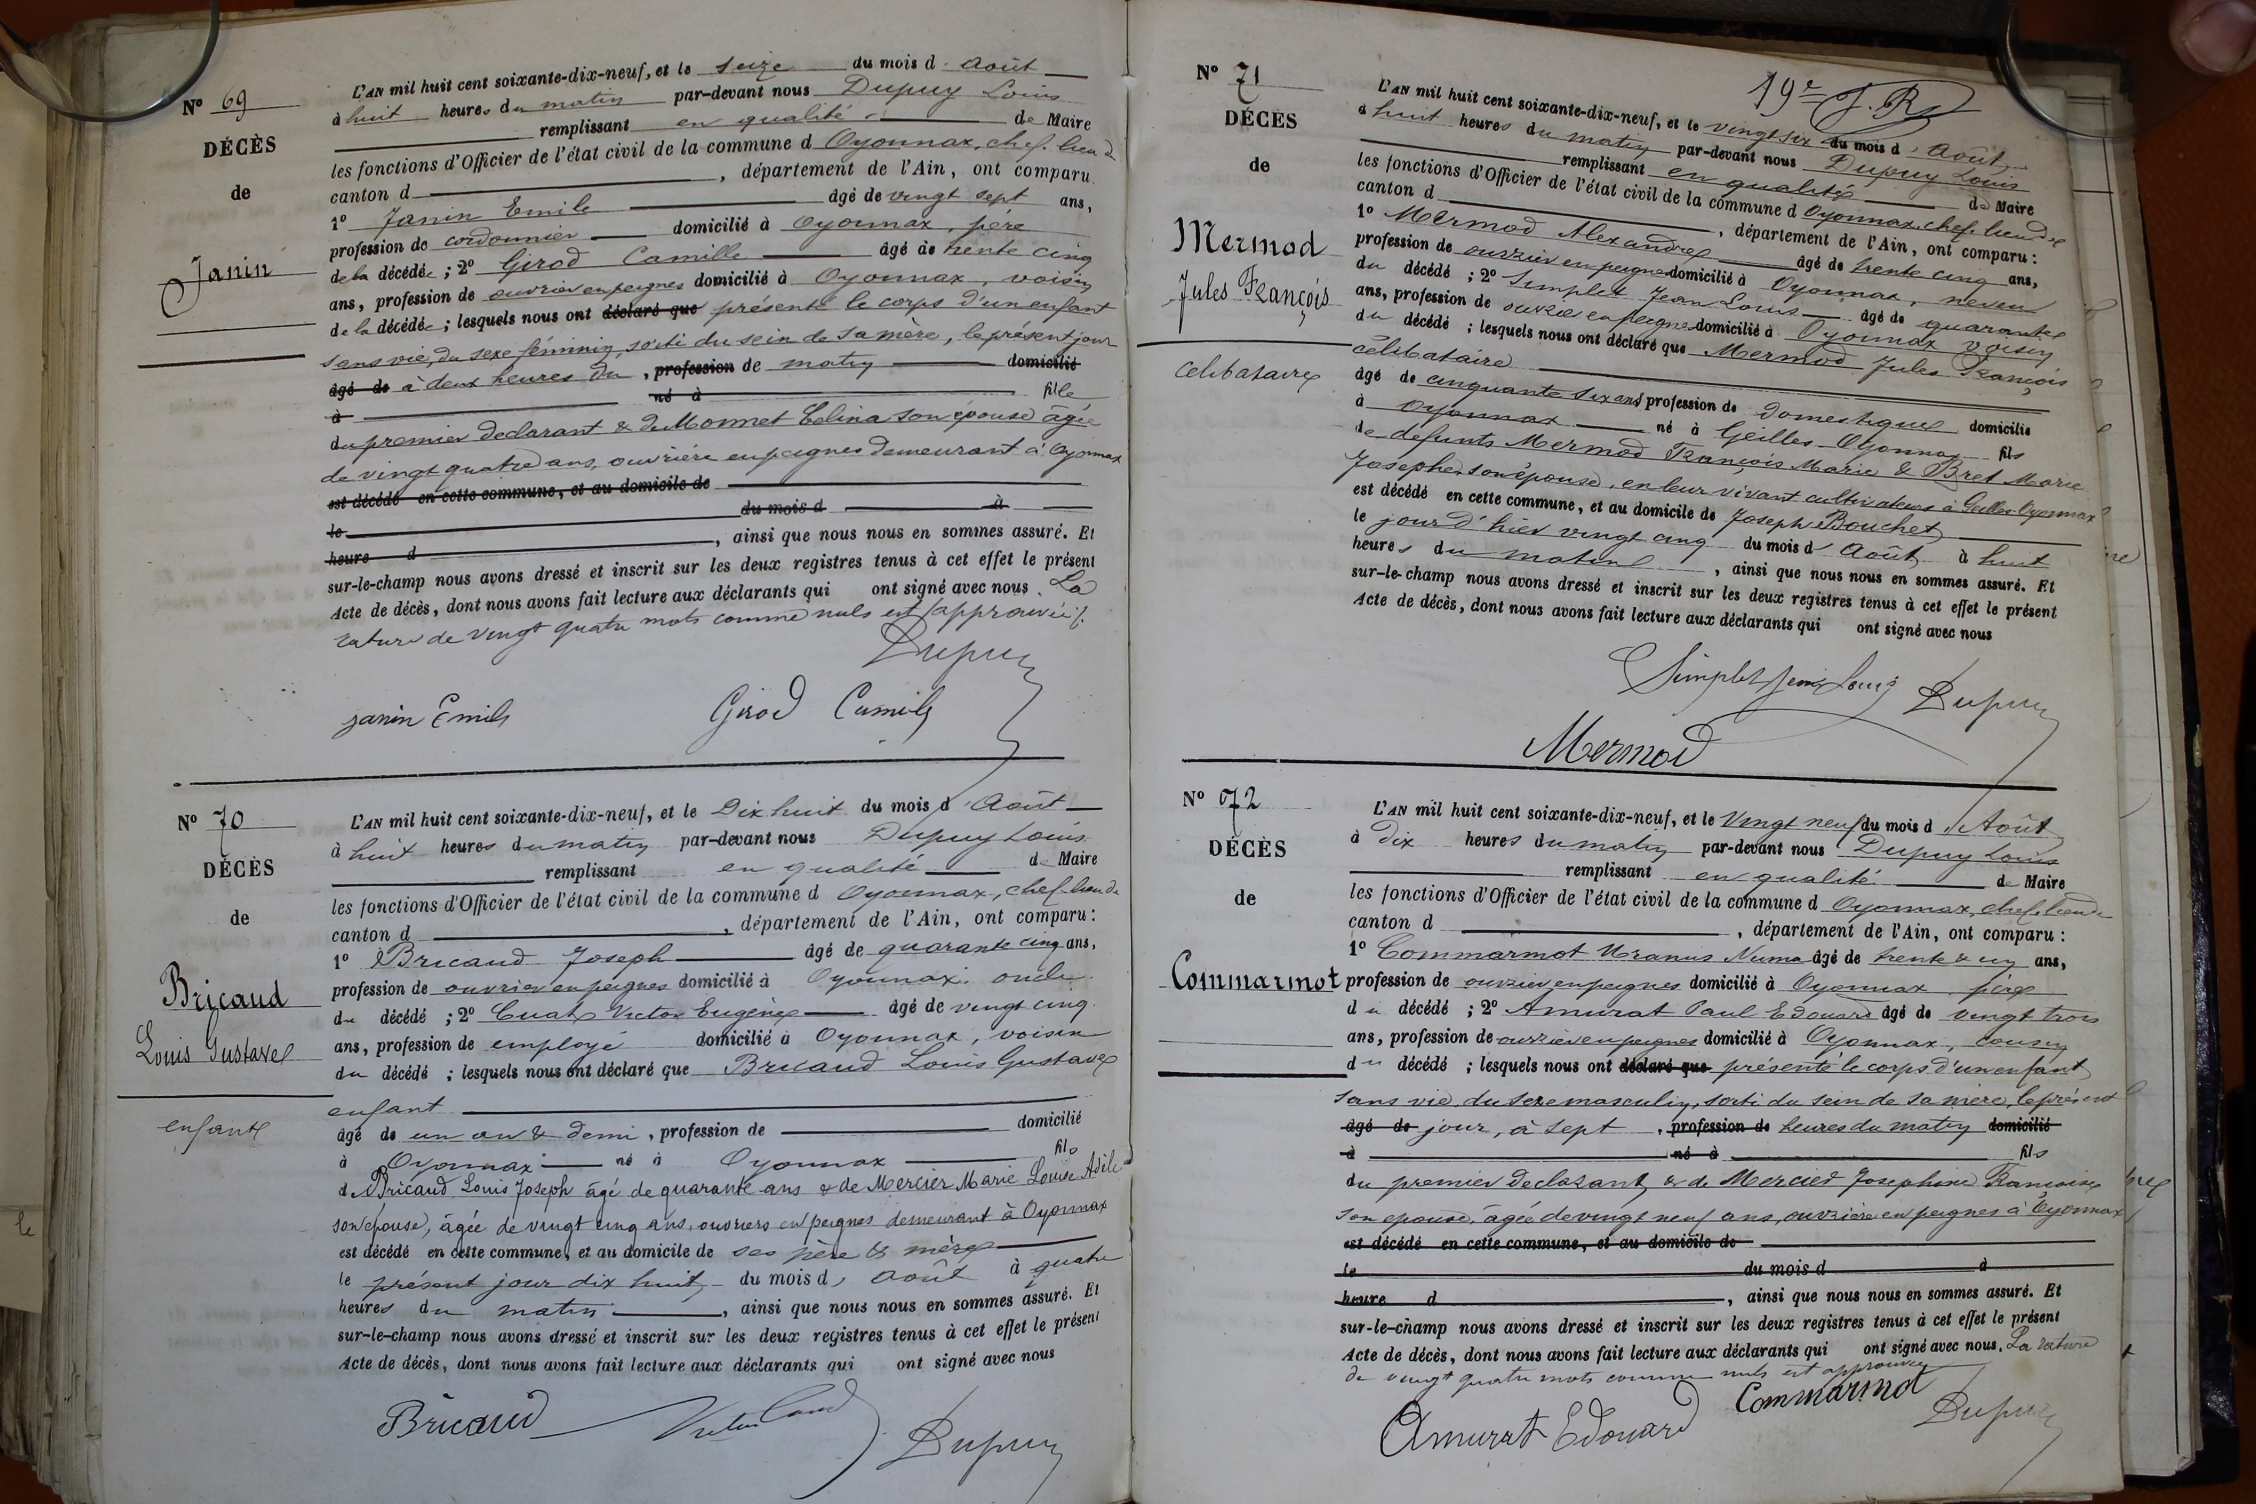 N° 69
DÉCÈS
de
Janin
L'AN mil huit cent soixante-dix-neuf, et le seize du mois d'août
à huit heures du matin par-devant nous Dupuy Louis
remplissant en qualité de Maire
les fonctions d'Officier de l'état civil de la commune d Oyonnax, chef lieu de
canton d , département de l'Ain, ont comparu
1° Janin Emile âgé de vingt sept ans,
profession de cordonnier domicilié à Oyonnax, père
de la décédée ; 2° Girod Camille âgé de trente cinq
ans, profession de ouvrier en peignes domicilié à Oyonnax, voisin
de la décédée ; lesquels nous ont déclaré que présenté le corps d'un enfant
sans vie, du sexe féminin, sorti du sein de sa mère, le présent jour
âgé de à deux heures du , profession de matin domicilié
à né à fille
du premier déclarant & de Monnet Celina son épouse âgée
de vingt quatre ans, ouvrière en peignes demeurant à Oyonnax
est décédé en cette commune, et au domicile de
le du mois d à
heure d , ainsi que nous nous en sommes assuré. Et
sur-le-champ nous avons dressé et inscrit sur les deux registres tenus à cet effet le présent
Acte de décès, dont nous avons fait lecture aux déclarants qui ont signé avec nous. La
rature de vingt quatre mots comme nuls est approuvée
Dupuy
Janin Emile Girod Camille
N° 70
DÉCÈS
de
Bricaud
Louis Gustave
enfant
L'AN mil huit cent soixante-dix-neuf, et le Dix huit du mois d'Août
à huit heures du matin par-devant nous Dupuy Louis
remplissant en qualité de Maire
les fonctions d'Officier de l'état civil de la commune d Oyonnax, chef-lieu de
canton d , département de l'Ain, ont comparu :
1° Bricaud Joseph âgé de quarante cinq ans,
profession de ouvrier en peignes domicilié à Oyonnax. oncle
du décédé ; 2° Victor Eugène âgé de vingt cinq
ans, profession de employé domicilié à Oyonnax, voisin
du décédé ; lesquels nous ont déclaré que Bricaud Louis Gustave
enfant
âgé de un an & demi, profession de domicilié
à Oyonnax né à Oyonnax fils
de Bricaud Louis Joseph âgé de quarante ans & de Mercier Marie Louise Adèle
son épouse, âgée de vingt cinq ans, ouvriers en peignes demeurant à Oyonnax
est décédé en cette commune, et au domicile de ses père & mère
le présent jour dix huit du mois d'août à quatre
heures du matin , ainsi que nous nous en sommes assuré. Et
sur-le-champ nous avons dressé et inscrit sur les deux registres tenus à cet effet le présent
Acte de décès, dont nous avons fait lecture aux déclarants qui ont signé avec nous
Bricaud Victor Dupuy
19e
N° 71
DÉCÈS
de
Mermod
Jules François
celibataire
L'AN mil huit cent soixante-dix-neuf, et le vingt six du mois d'Août
à huit heures du matin par-devant nous Dupuy Louis
remplissant en qualité de Maire
les fonctions d'Officier de l'état civil de la commune d Oyonnax chef lieu de
canton d , département de l'Ain, ont comparu :
1° Mermod Alexandre âgé de trente cinq ans,
profession de ouvrier en peignes domicilié à Oyonnax, neveu
du décédé ; 2° Simplet Jean Louis âgé de quarante
ans, profession de ouvrier en peignes domicilié à Oyonnax voisin
du décédé ; lesquels nous ont déclaré que Mermod Jules François
célibataire
âgé de cinquante six ans profession de domestique domicilié
à Oyonnax né à Geilles-Oyonnax fils
de defunts Mermod François Marie & Bret Marie
Josephe, son épouse, en leur vivant cultivateurs à Geilles Oyonnax
est décédé en cette commune, et au domicile de Joseph Bouchet
le jour d'hier vingt cinq du mois d'Août à huit
heures du matin , ainsi que nous nous en sommes assuré. Et
sur-le-champ nous avons dressé et inscrit sur les deux registres tenus à cet effet le présent
Acte de décès, dont nous avons fait lecture aux déclarants qui ont signé avec nous
Simplet Jean Louis Dupuy
Mermod
N° 72
DÉCÈS
de
Commarmot
L'AN mil huit cent soixante-dix-neuf, et le Vingt neuf du mois d'Août
à Dix heures du matin par-devant nous Dupuy Louis
remplissant en qualité de Maire
les fonctions d'Officier de l'état civil de la commune d Oyonnax, chef lieu de
canton d , département de l'Ain, ont comparu :
1° Commarmot Uranus Numa âgé de trente & un ans,
profession de ouvrier en peignes domicilié à Oyonnax, père
du décédé ; 2° Amurat Paul Edouard âgé de vingt trois
ans, profession de ouvrier en peignes domicilié à Oyonnax, cousin
du décédé ; lesquels nous ont déclaré que présenté le corps d'un enfant
sans vie, du sexe masculin, sorti du sein de sa mère, le présent
âgé de jour, à sept , profession de heures du matin domicilié
à né à fils
du premier declarant & de Mercier Josephine Françoise
son épouse, âgée de vingt neuf ans, ouvrière en peignes à Oyonnax
est décédé en cette commune, et au domicile de
le du mois d à
heure d , ainsi que nous nous en sommes assuré. Et
sur-le-champ nous avons dressé et inscrit sur les deux registres tenus à cet effet le présent
Acte de décès, dont nous avons fait lecture aux déclarants qui ont signé avec nous. La rature
de vingt quatre mots comme nuls est approuvée
Commarmot
Amurat Edouard Dupuy